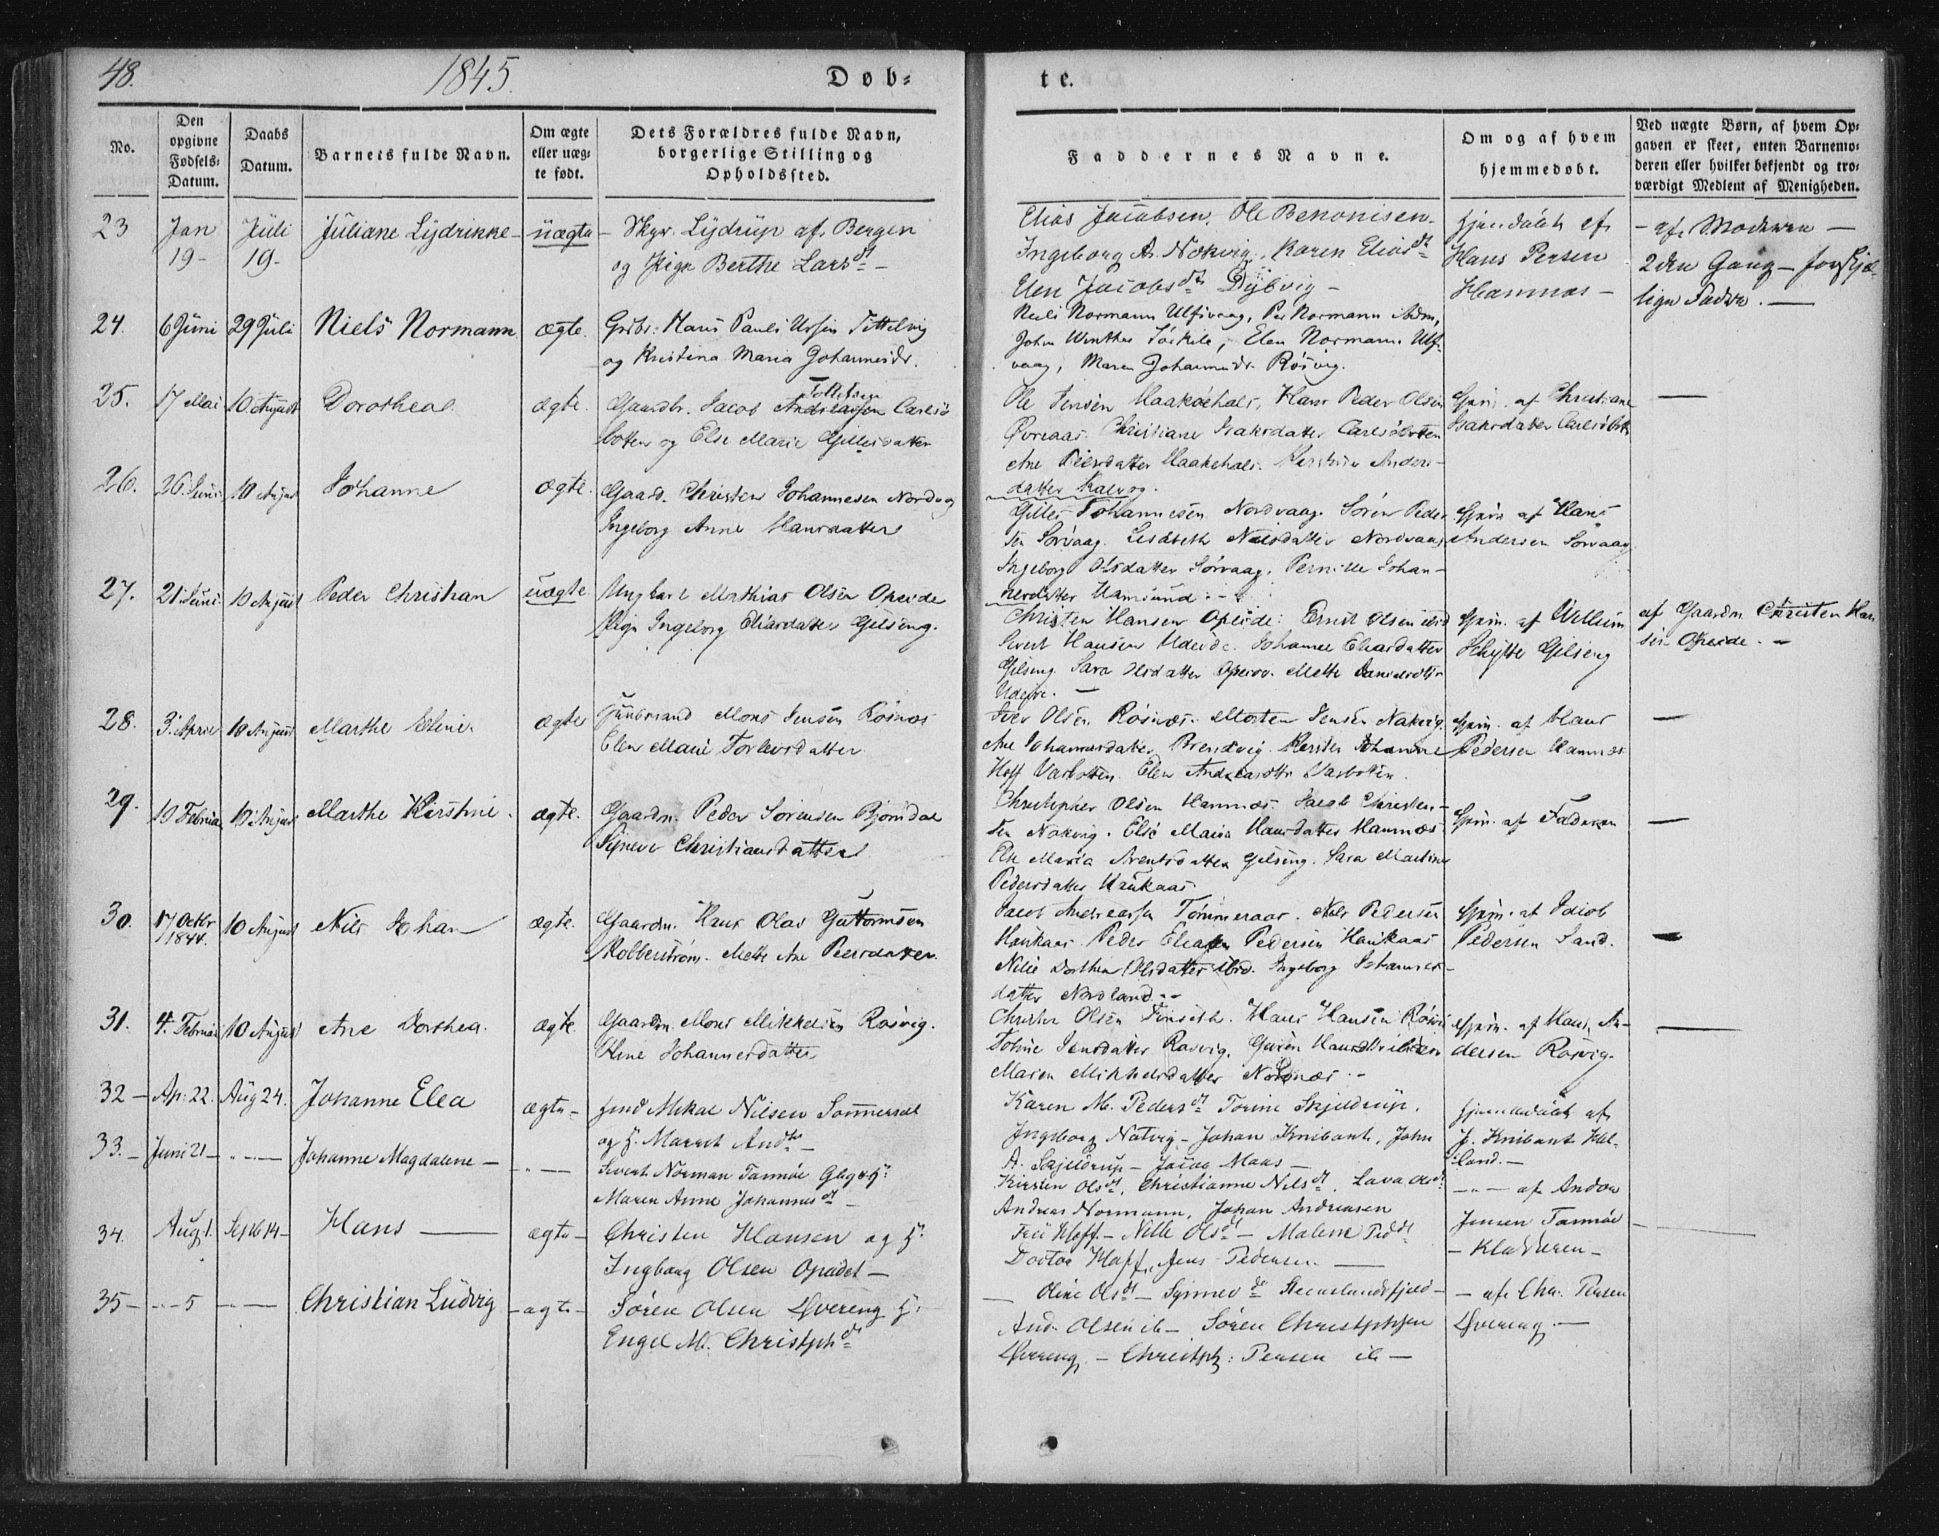 48.
1845.
Døb-
te.
No.
Den opgivne Fødsels-Datum.
Daabs Datum.
Barnets fulde Navn.
Om ægte eller uæg-te født.
Dets Forældres fulde Navn, borgerlige Stilling og Opholdssted.
Faddernes Navne.
Om og af hvem hjemmedøbt.
Ved uægte Børn, af hvem Op-gaven er skeet, enten Barnemo-deren eller hvilket bekjendt og tro-værdigt Medlem af Menigheden.
23 Jan 19- Juli 19- Juliane Lydrikke- uægte- Skpr. Lydrup af Bergen
og Pige Berthe Larsdt-
Elias Jacobsen, Ole Benonisen-
Ingeborg A. Nækvig, Karen Eliasdt-
Elen Jacobsdt Dybvig-
Hans Persen
Hamnæs-
- af Moderen-
2den Gang-
24. 6 Juni 29 Juli Niels Normann ægte. Grdbr: Hans Pauli Ursin Tittelvig
og Kristina Maria Johannesdr.
Niels Normann Ulfsvaag, Per Normann ibdm,
John Winther, Elen Normann Ulf-
vaag, Maren Johannesdr. Røsvig.
25. 17 Mai 10 August Dorothea ægte. Gaardbr. Jacob Andreassen Tollefsen Carlsø
botten og Else Marie Gillesdatter
Ole Jensen Haakøehals, Hans Peder Olsen
Øvreaas. Christiane Isaksdatter Carlsøbotten
Ane Peersdatter Haakehals. Kerstine Anders-
datter Kalvog.
Hjem. af Christiane
Isaksdatter Carlsøbotn
26. 26 Juni 10 August Johanne ægte. Gaard. Christen Johannesen Nordvog
Ingeborg Anne Hansdatter
Gilles Johannesen Nordvaag. Sören Peder
sen Sørvaag. Lisabeth Nielsdatter Nordvaag
Ingeborg Olsdatter Sørvaag. Pernille Johan-
nesdatter Hamsund.-
Hjem. af Hans
Andersen Sørvaag
27. 21 Juni 10 August Peder Christian uægte. Ungkarl Mathias Olsen Opeide
Pige Ingeborg Eliasdatter Gilseng.
Christen Hansen Opeide: Ernst Olsen ibid
Sivert Hansen. Johanne Eliasdatter
Gilseng. Sara Olsdatter. Mette Danielsdtr
Hjem. af Wellum
Schytte Gilseng
af Gaardm Christen Han
sen Opeide.-
28. 3 April 10 August Marthe Eline. ægte Huusmand Mons Jensen Røsnæs
Elen Marie Torlevsdatter
Iver Olsen Røsnæs. Morten Jensen Nakvig.
Ane Johannesdatter Brendvig. Kersten Johanne
Hoff Varbotten. Elen Andreasdttr Varbotten.
Hjem. af Hans
Pedersen Hamnæs
29. 10 Februar 10 August Marthe Kirstine. ægte. Gaardm. Peder Sørensen Bjørndal
Synever Christiansdatter
Christopher Olsen Hamnæs. Jacob Christen-
sen Nakvig. Else Maria Hansdatter Hamnæs
Else Maria Arentsdatter Gilseng. Sara Martine
Pedersdatter Haukaas
Hjem. af Faderen
30. 17 Octbr 1844. 10 August Nils Johan ægte. Gaardm. Hans Olai Guttormsen
Robberstrøm. Mette Ane Peersdatter.
Jacob Andreassen Tømmeraas. Nils Pedersen
Haukaas. Peder Eliassen Pedersen Haukaas
Nille Dorthea Olsdatter ibid. Ingeborg Johannes-
datter Nordland.-
Hjem. af
Pedersen Sand.
31. 4. Februar 10 August Ane Dorthea. ægte. Gaardm. Mons Mikkelsen Rosvig.
Eline Johannesdatter
Christen Olsen Finseth. Hans Hansen Røsvi
Toline Jensdatter Rosvig. Guren Hansdttr
Maren Mikkelsdatter Nordnæs.-
Hjem. af Hans An-
dersen Rosvig.
32- Ap: 22. Aug 24. Johanne Elea ægte- Hmd Mikal Nilsen Sommersel
og H. Marrit Anddtr-
Karen M. Pedersdt Torine Skjeldrup,
Ingeborg Natvig- Johan Knibant, John
A. Skjeldrup- Jacob Maas-
hjemmedøbt af
J. Knibant Hel-
land.-
33.- Juni 21- Johanne Magdalene- Sivert Norman Tannøe
Maren Anne Johannesdt-
Kirsten Olsdt, Christianne Nilsdt. Lava Olsdt
Andreas Normann, Johan Andreasen
af Andor
Jensen Tannøe
34. Aug 1. Sept 14- Hans- ægte- Christen Hansen og H:
Ingborg Olsen Opeidet-
Frü Hoff- Nille Olsdt- Malene Peddt
Doctor Hoff, Jens Pedersen-
- Kladderen-
35- 5 Christian Ludvig- ægte- Søren Olsen Qvereng H:
Engel M. Christphdt
Oline Olsdt- Synnev
And. Olsen ib- Søren Christphsen
Qvereng.- Christph: Pensen ib-
- af Chr. Pensen
Qvereng.-